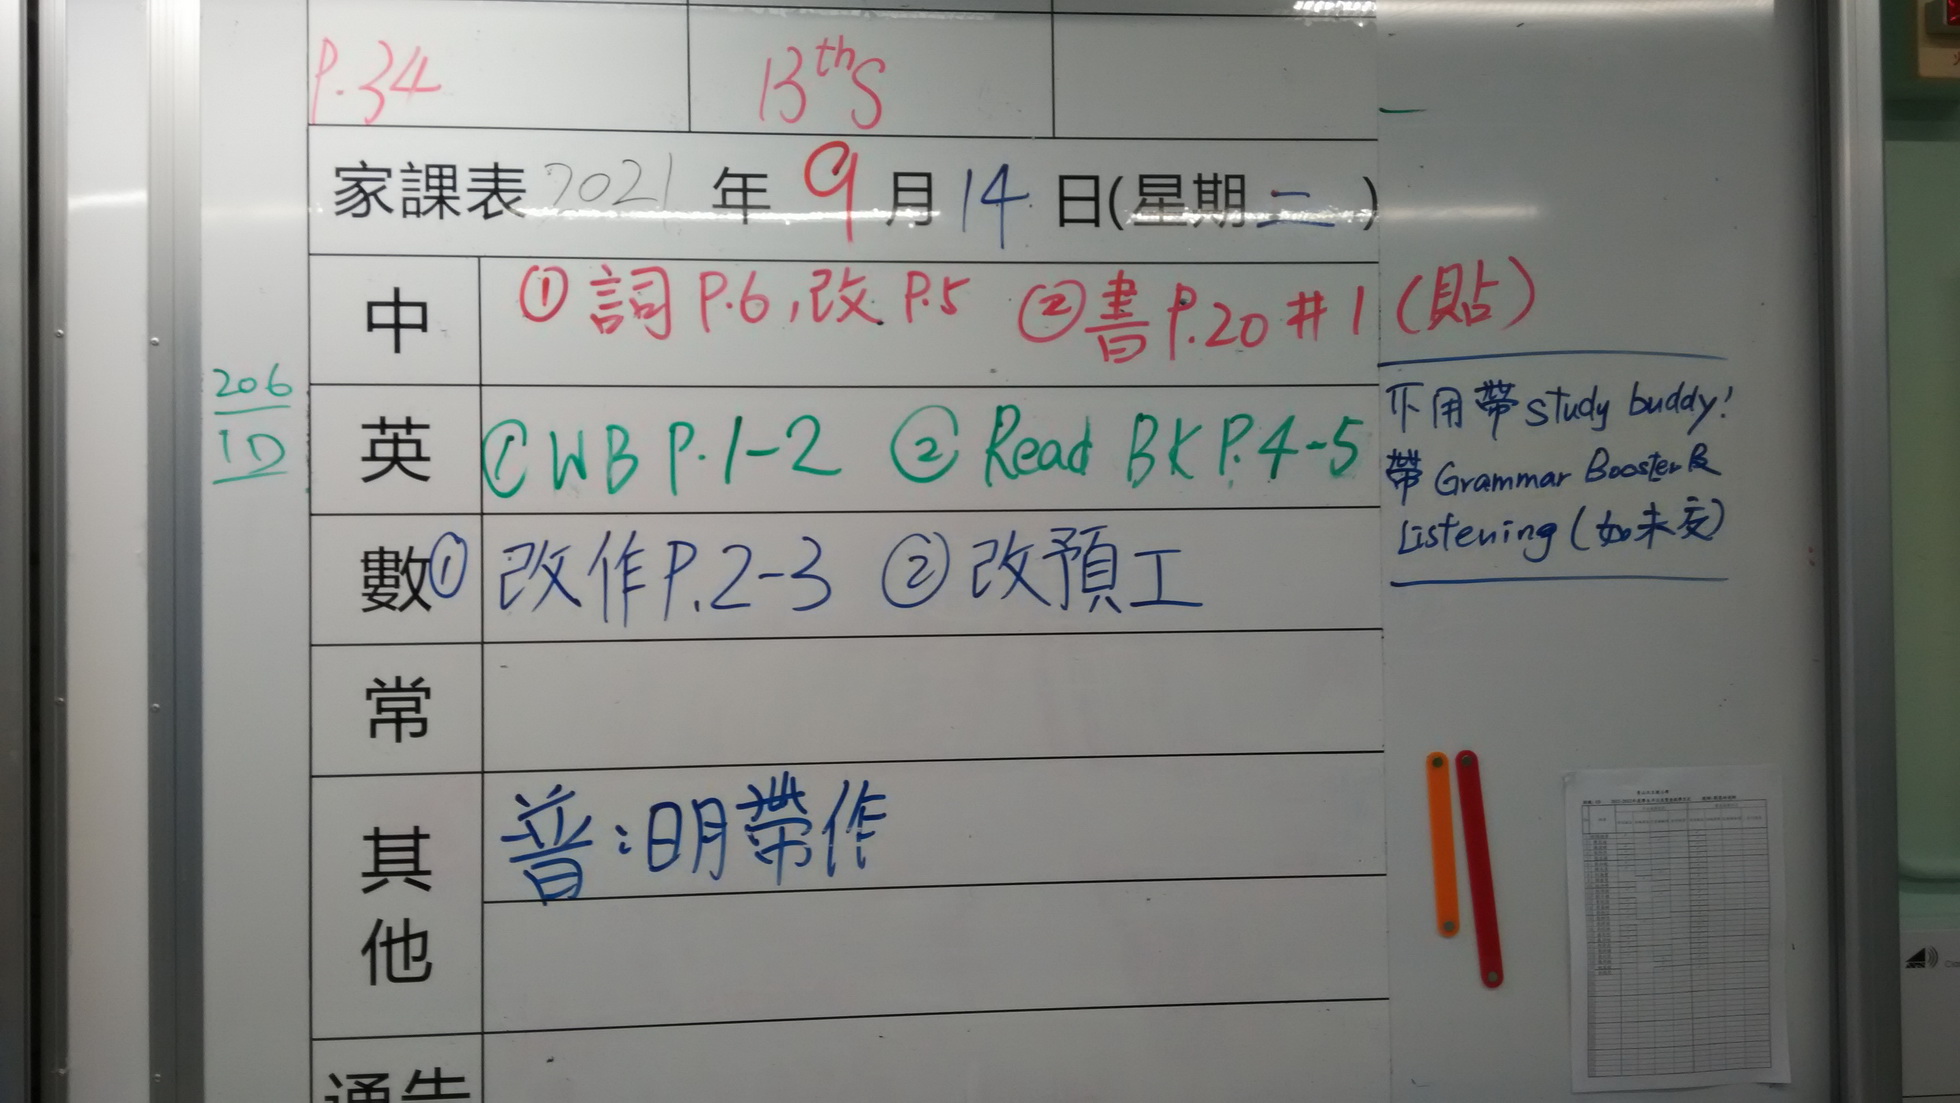 P.34 13thS
家課表 2021 年 9 月 14 日(星期二)
中 ① 詞 P.6,改 P.5 ② 書 P.20 #1 (貼)
206
1D
英 ① WB P.1-2 ② Read BK P.4-5
不用帶 study buddy!
帶 Grammar Booster 及
Listening (如未交)
數 ① 改作 P.2-3 ② 改預工
常
其他 普:明帶作
通告